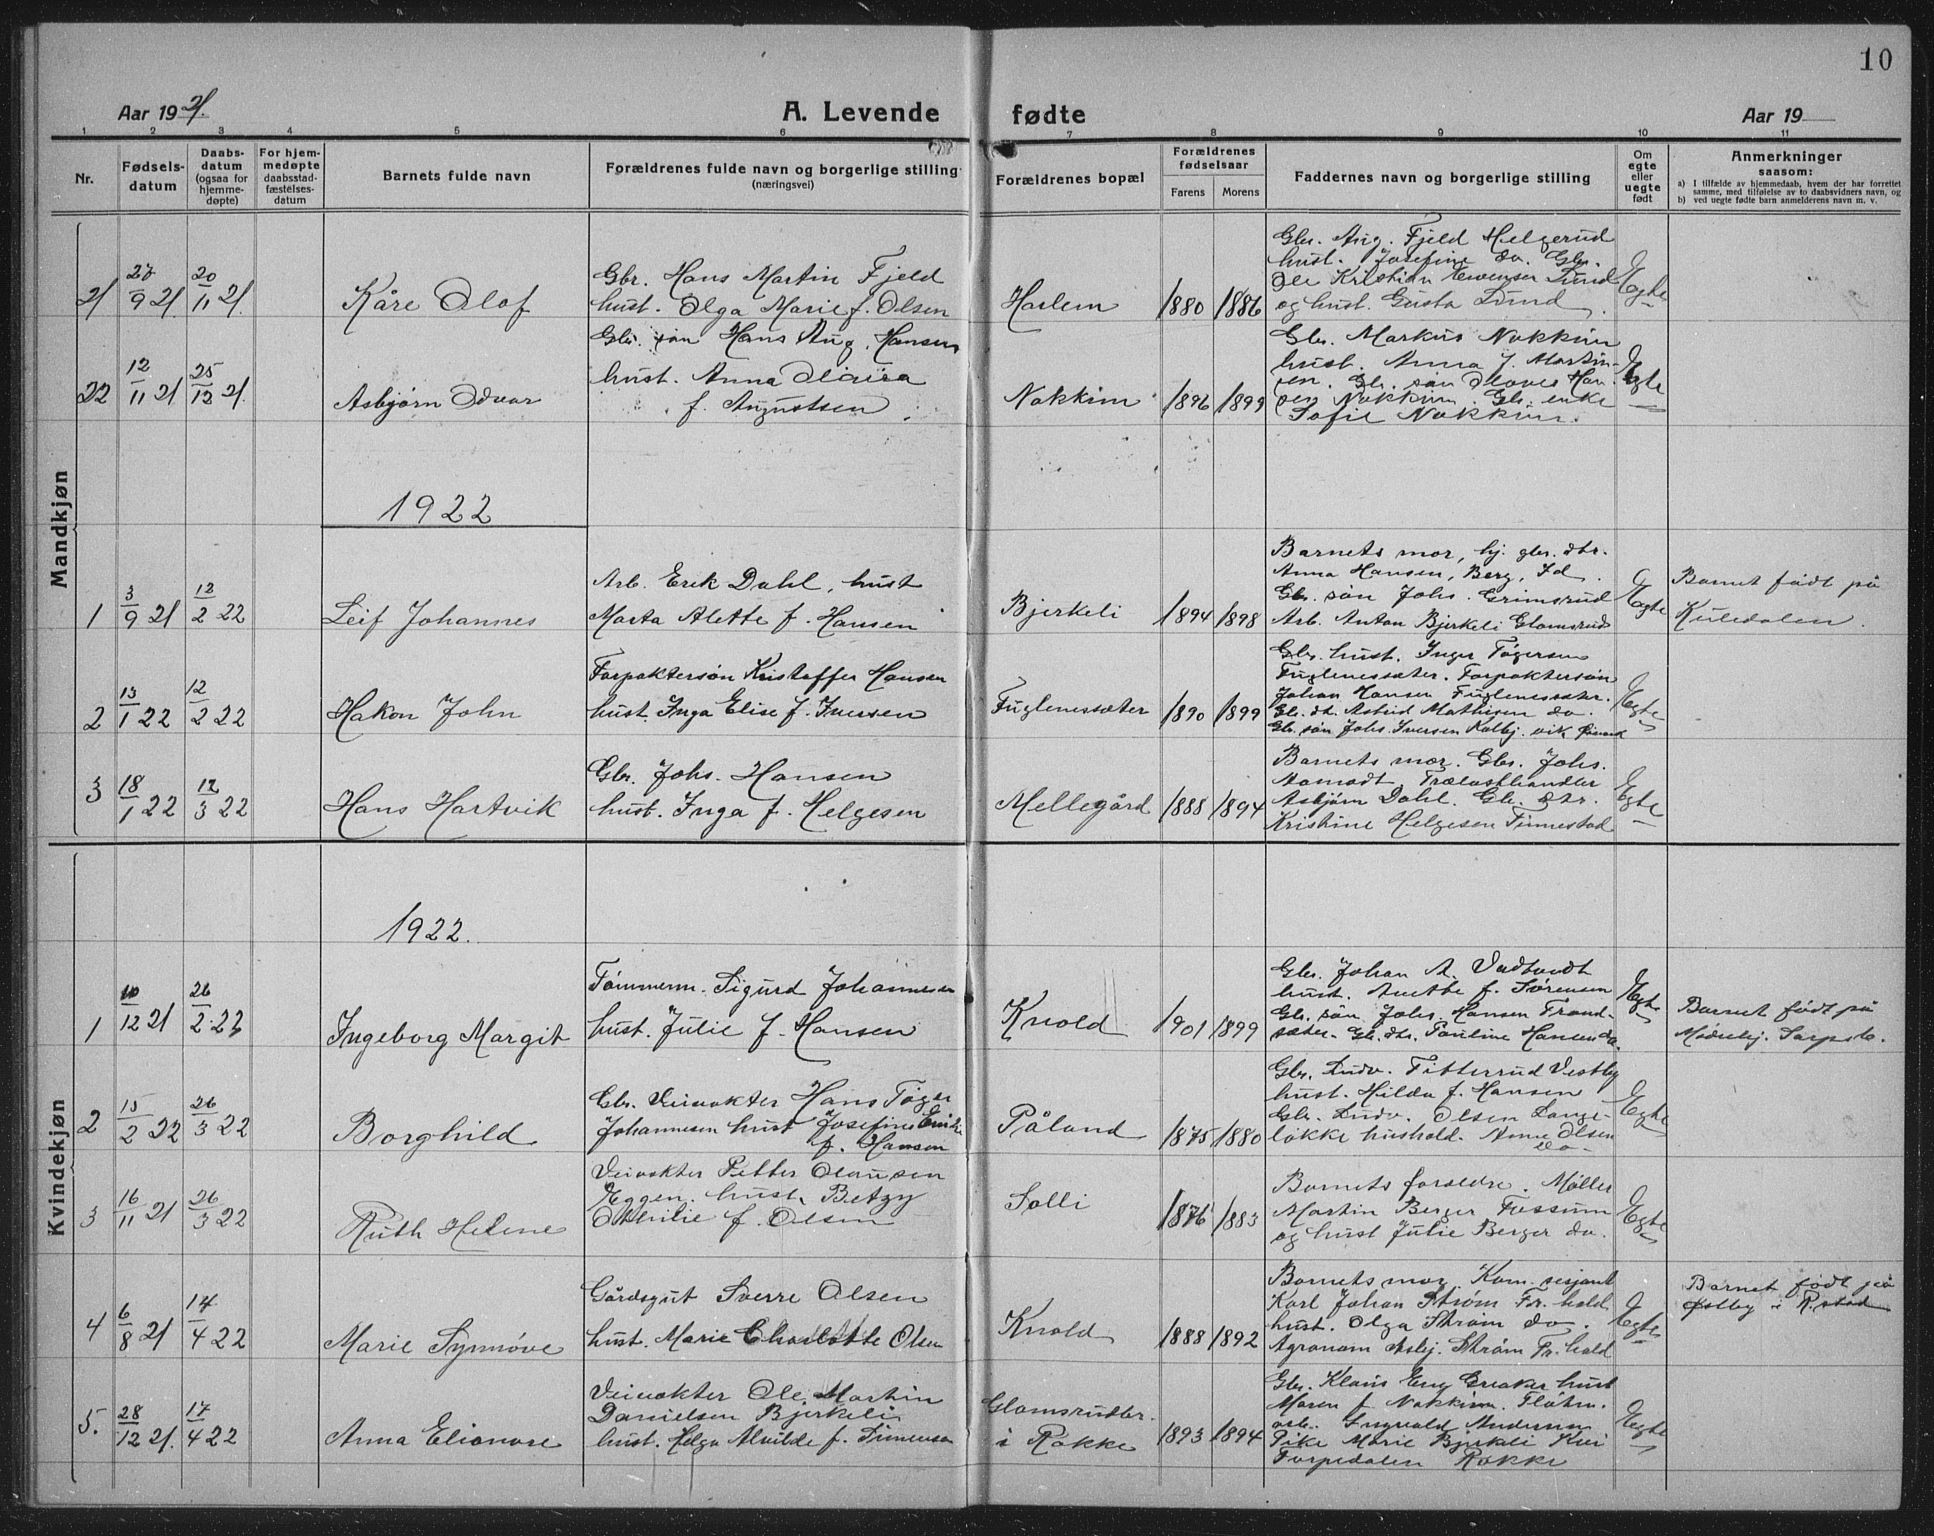 10
Aar 1921. A. Levende fødte Aar 19
1 2 3 4 5 6 7 8 9 10 11
Nr. Fødsels-datum Daabs-datum (ogsaa for hjemme-døpte) For hjem-medøpte daabsstad-fæstelses-datum Barnets fulde navn Forældrenes fulde navn og borgerlige stilling (næringsvei) Forældrenes bopæl Forældrenes fødselsaar Farens Morens Faddernes navn og borgerlige stilling Om egte eller uegte født Anmerkninger saasom:
a) I tilfælde av hjemmedaab, hvem der har forrettet samme, med tilføielse av to daabsvidners navn, og
b) ved uegte fødte barn anmelderens navn m. v.
Mandkjøn
21 27/9 21 20/11 21. Kåre Olof
Gbr. Hans Martin Fjeld
hust. Olga Marie f. Olsen
Harlem 1880 1886
Gbr. Aug. Fjeld Helgerud
hust. Josefine do. Gbr.
Ole Kristian Evensen Lund
og hust. Gusta Lund
Egte
22 12/11 21 25/12 21. Asbjørn Odvar
Gbr. søn Hans Aug. Hansen
hust. Anna Maria
f. Augustsen
Nokkim 1896 1899
Gbr. Markus Nokkim
hust. Anna f. Martin-
sen. Gbr. søn Olaves Han-
sen Nokkim. Gbr. enke
Sofie Nokkim.
Egte
1922
1 3/9 21 12/2 22 Leif Johannes
Arb. Erik Dahl, hust
Marta Alette f. Hansen
Bjerkeli 1894 1898
Barnets mor, hj. gbr. dtr.
Anna Hansen, Berg, Id.
Gbr. søn Johs. Grimsrud
Arb. Anton Bjerkeli Glomsrud
Egte
Barnet født på
Kuledalen.
2 13/1 22 12/2 22 Hakon John
Forpaktersøn Kristoffer Hansen
hust. Inga Elise f. Iversen
Fuglenessæter 1890 1899
Gbr. hust. Inger Tøgersen
Fuglenessæter. Forpaktersøn
Johan Hansen Fuglenessæter.
Gbr. dt. Astrid Mathisen do.
Gbr. søn Johs. Iversen Kolbj. vik
Egte
3 18/1 22 12/3 22 Hans Hartvik
Gbr. Johs. Hansen
hust. Inga f. Helgesen
Mellegård 1888 1894
Barnets mor. Gbr. Johs.
Aamodt Trælasthandler
Asbjørn Dahl. Gbr. dtr.
Kristine Helgesen Tinnestad
Egte
Kvindekjøn
1922.
1 10/12 21 26/2 22 Ingeborg Margit
Tømmerm. Sigurd Johannesen
hust. Julie f. Hansen
Knold 1901 1899
Gbr. Johan A. Vadtvedt
hust. Anette f. Sørensen
Gbr. søn Johs. Hansen Trond-
sæter. Gbr. dtr. Pauline Hansen do.
Egte
Barnet født på
Mødrehj. Sarpsb.
2 15/2 22 26/3 22 Borghild
Gbr. Veivokter Hans Tøger
Johannesen hust Josefine
f. Hansen
Påland 1875 1880
Gbr. Ludv. Fitterrud Vestby
hust. Hilda f. Hansen
Gbr. Ludv. Olsen Lange-
løkke hushold. Anne Olsen
do-
Egte
3 16/11 21 26/3 22 Ruth Helene
Veivokter Petter Olausen
Eggen. hust. Betzy
Othilie f. Olsen
Solli 1876 1883
Barnets foreldre. Møller
Martin Berger Fossum
og hust Julie Berger do.
Egte
4 6/8 21 14/4 22 Marie Synnøve
Gårdsgut Sverre Olsen
hust. Marie Charlotte Olsen
Knold 1888 1892
Barnets mor. Kom. sesjant
Karl Johan Strøm Fr. hald
hust. Olga Strøm do.
Agronom Asbj. Strøm Fr. hald
Egte
Barnet født på
Østby i R.stad
5. 28/12 21. 17/4 22 Anna Elionore
Veivokter Ole Martin
Danielsen Bjerkeli
hust. Helga Alvilde f. Simensen
Glomsrudbr.
i Rokke 1893 1894
Gbr. Klaus Greaker hust
Maren f. Nokkim. Fløtn.
arb. Ingvald Andersen
Pike Marie Bjerkeli
Torpedalen Rokke
Egte